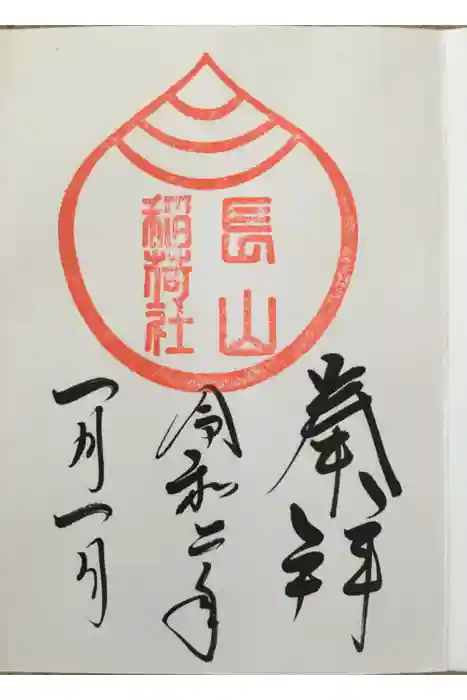 長山
稲荷社
奉拝
令和二年
一月一日